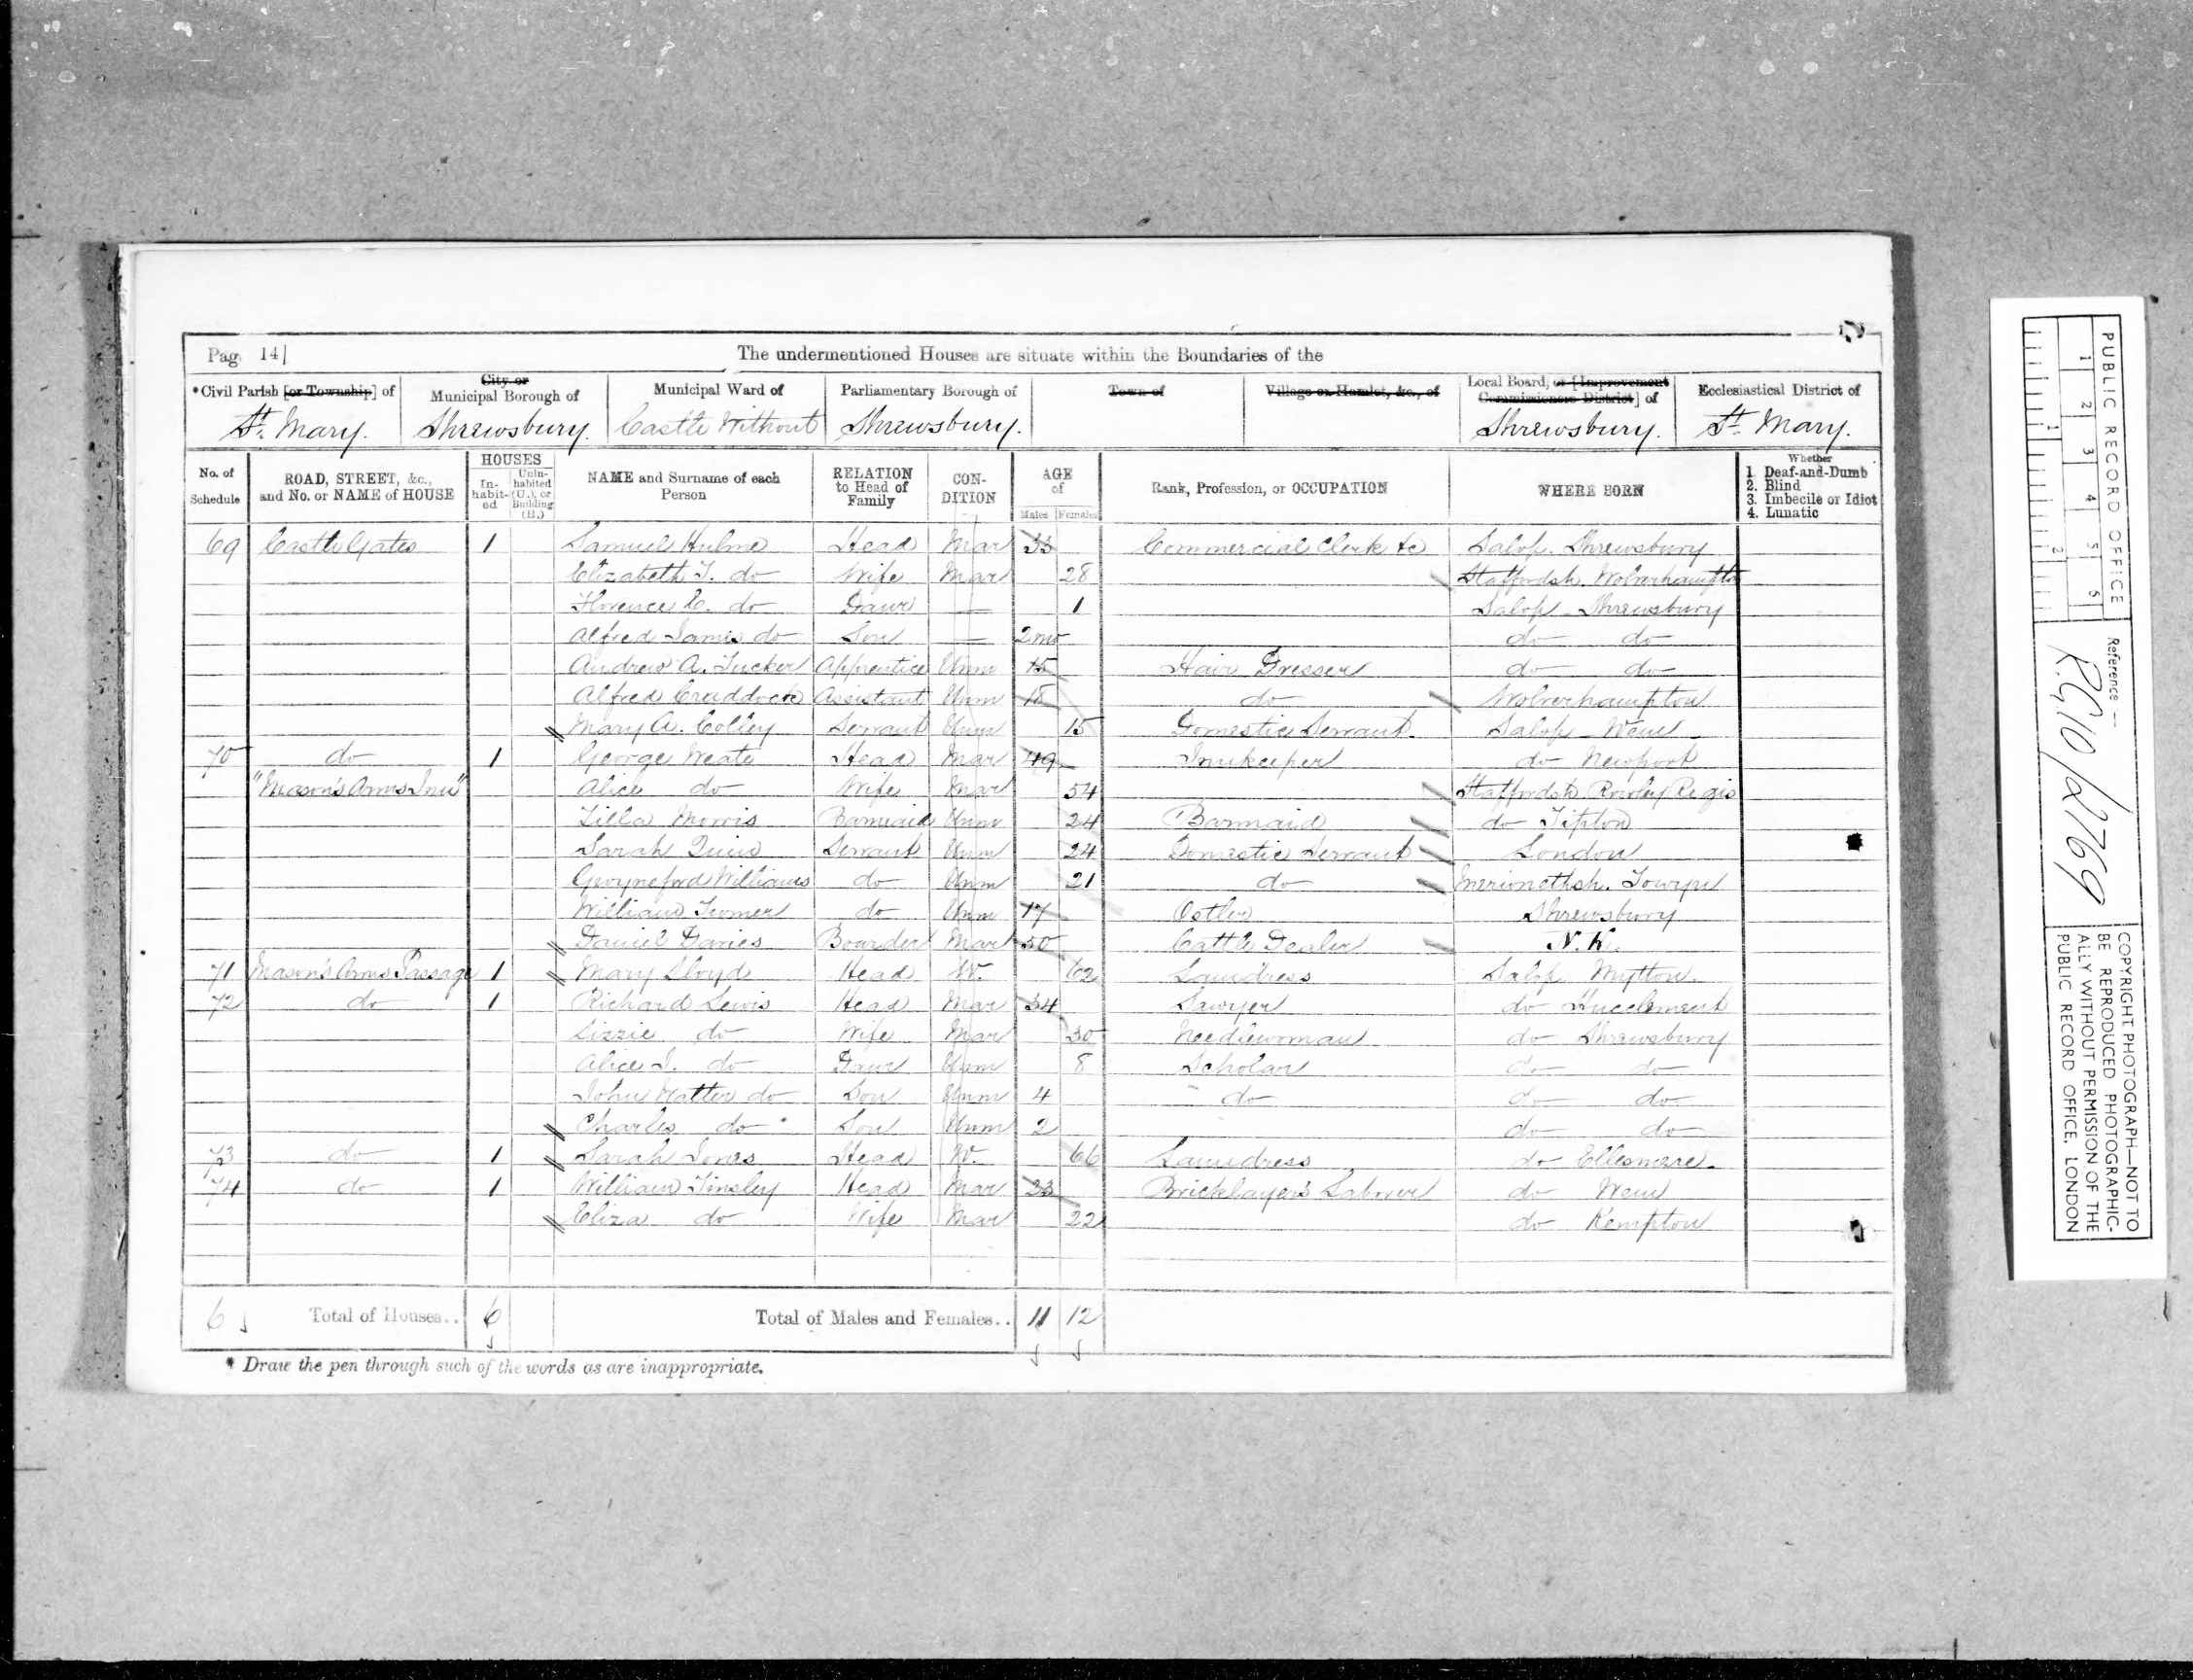 Page 14]
The undermentioned Houses are situate within the Boundaries of the
*Civil Parish [or Township] of City or Municipal Borough of Municipal Ward of Parliamentary Borough of Town of Village or Hamlet, &c., of Local Board, or [Improvement Commissioners District] of Ecclesiastical District of
St. Mary. Shrewsbury. Castle Without Shrewsbury. Shrewsbury. St. Mary.
No. of Schedule ROAD, STREET, &c., and No. or NAME of HOUSE HOUSES Inhabited Uninhabited (U.), or Building (B.) NAME and Surname of each Person RELATION to Head of Family CONDITION AGE of Males Females Rank, Profession, or OCCUPATION WHERE BORN Whether 1. Deaf-and-Dumb 2. Blind 3. Imbecile or Idiot 4. Lunatic
69 Castle Gates 1 Samuel Hulme Head Mar 33 Commercial Clerk &c Salop. Shrewsbury
Elizabeth T. do Wife Mar 28 Staffordsh. Wolverhampton
Florence E. do Daur — 1 Salop Shrewsbury
Alfred James do Son — 2mo do do
Andrew A. Tucker Apprentice Unm 15 Hair Dresser do do
Alfred Craddock Assistant Unm 18 do Wolverhampton
Mary A. Colley Servant Unm 15 Domestic Servant Salop Wem
70 do 1 George Weate Head Mar 49 Innkeeper do Newport
"Mason's Arms Inn" Alice do Wife Mar 54 Staffordsh Rowley Regis
Morris Barmaid Unm 24 Barmaid do Tipton
Sarah Servant Unm 24 Domestic Servant London
Gwyneford Williams do Unm 21 do Merionethsh. Towyn
William Turner do Unm 17 Ostler Shrewsbury
Daniel Davies Boarder Mar 30 Cattle Dealer N.K.
71 Mason's Arms Passage 1 Mary Lloyd Head W. 62 Laundress Salop Mytton
72 do 1 Richard Lewis Head Mar 34 Sawyer do
Lizzie do Wife Mar 30 Needlewoman do Shrewsbury
Alice J. do Daur Unm 8 Scholar do do
John Walter do Son Unm 4 do do do
Charles do Son Unm 2 do do
73 do 1 Sarah Jones Head W. 66 Laundress do Ellesmere
74 do 1 William Tinsley Head Mar 23 Bricklayer's Laborer do Wem
Eliza do Wife Mar 22 do Kempton
6 Total of Houses.. 6 Total of Males and Females.. 11 12
* Draw the pen through such of the words as are inappropriate.
PUBLIC RECORD OFFICE
1 2 3 4 5 6
1 2
Reference:—
R.G.10/2769
COPYRIGHT PHOTOGRAPH—NOT TO
BE REPRODUCED PHOTOGRAPHIC-
ALLY WITHOUT PERMISSION OF THE
PUBLIC RECORD OFFICE, LONDON